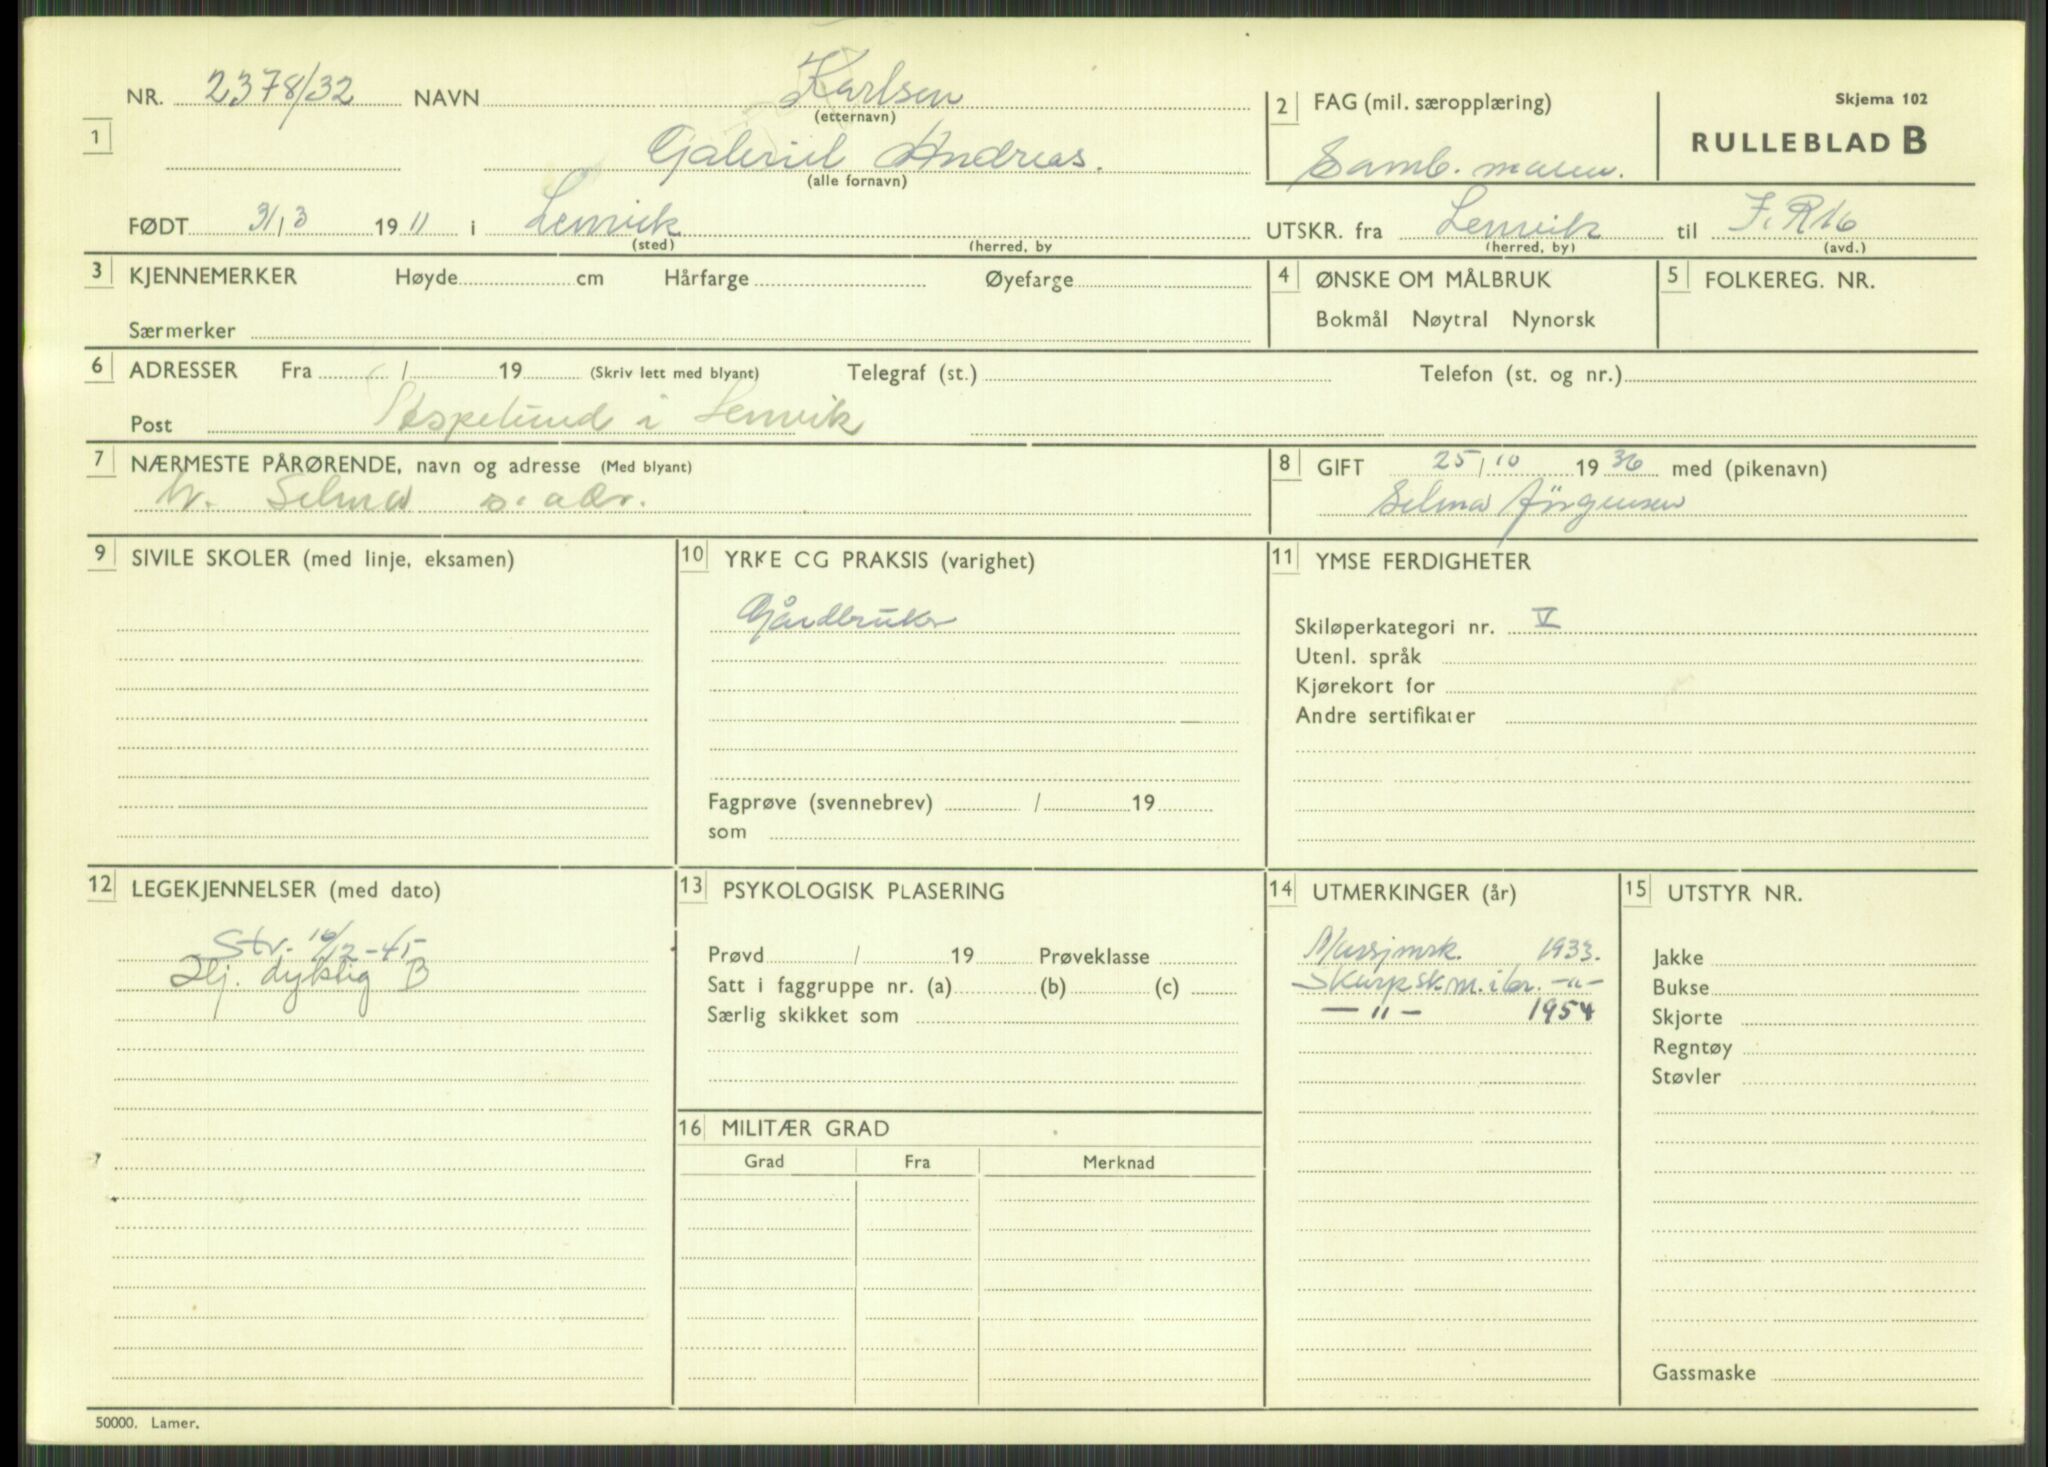 Skjema 102
RULLEBLAD B
1
NR. 2378/32 NAVN Karlsen
(etternavn)
Gabriel Andreas.
(alle fornavn)
FØDT 31/3 1911 i Lenvik
(sted) (herred, by
2 FAG (mil. særopplæring)
Samb. mann.
UTSKR. fra Lenvik til J.R16
(herred, by) (avd.)
3 KJENNEMERKER Høyde cm Hårfarge Øyefarge
Særmerker
4 ØNSKE OM MÅLBRUK
Bokmål Nøytral Nynorsk
5 FOLKEREG. NR.
6 ADRESSER Fra / 19 (Skriv lett med blyant) Telegraf (st.) Telefon (st. og nr.)
Post Aspelund i Lenvik
7 NÆRMESTE PÅRØRENDE, navn og adresse (Med blyant)
h. Selma s. adr.
8 GIFT 25/10 1936 med (pikenavn)
Selma Jörgensen
9 SIVILE SKOLER (med linje, eksamen)
10 YRKE CG PRAKSIS (varighet)
Gårdbruker
Fagprøve (svennebrev) / 19
som
11 YMSE FERDIGHETER
Skiløperkategori nr. V
Utenl. språk
Kjørekort for
Andre sertifikater
12 LEGEKJENNELSER (med dato)
Str. 16/12-45
Hj. dyktig B
13 PSYKOLOGISK PLASERING
Prøvd / 19 Prøveklasse
Satt i faggruppe nr. (a) (b) (c)
Særlig skikket som
14 UTMERKINGER (år)
Marsjmrk. 1933.
Skarpskm. i br. -"-
- " - 1954
15 UTSTYR NR.
Jakke
Bukse
Skjorte
Regntøy
Støvler
Gassmaske
16 MILITÆR GRAD
Grad Fra Merknad
50000. Lamer.